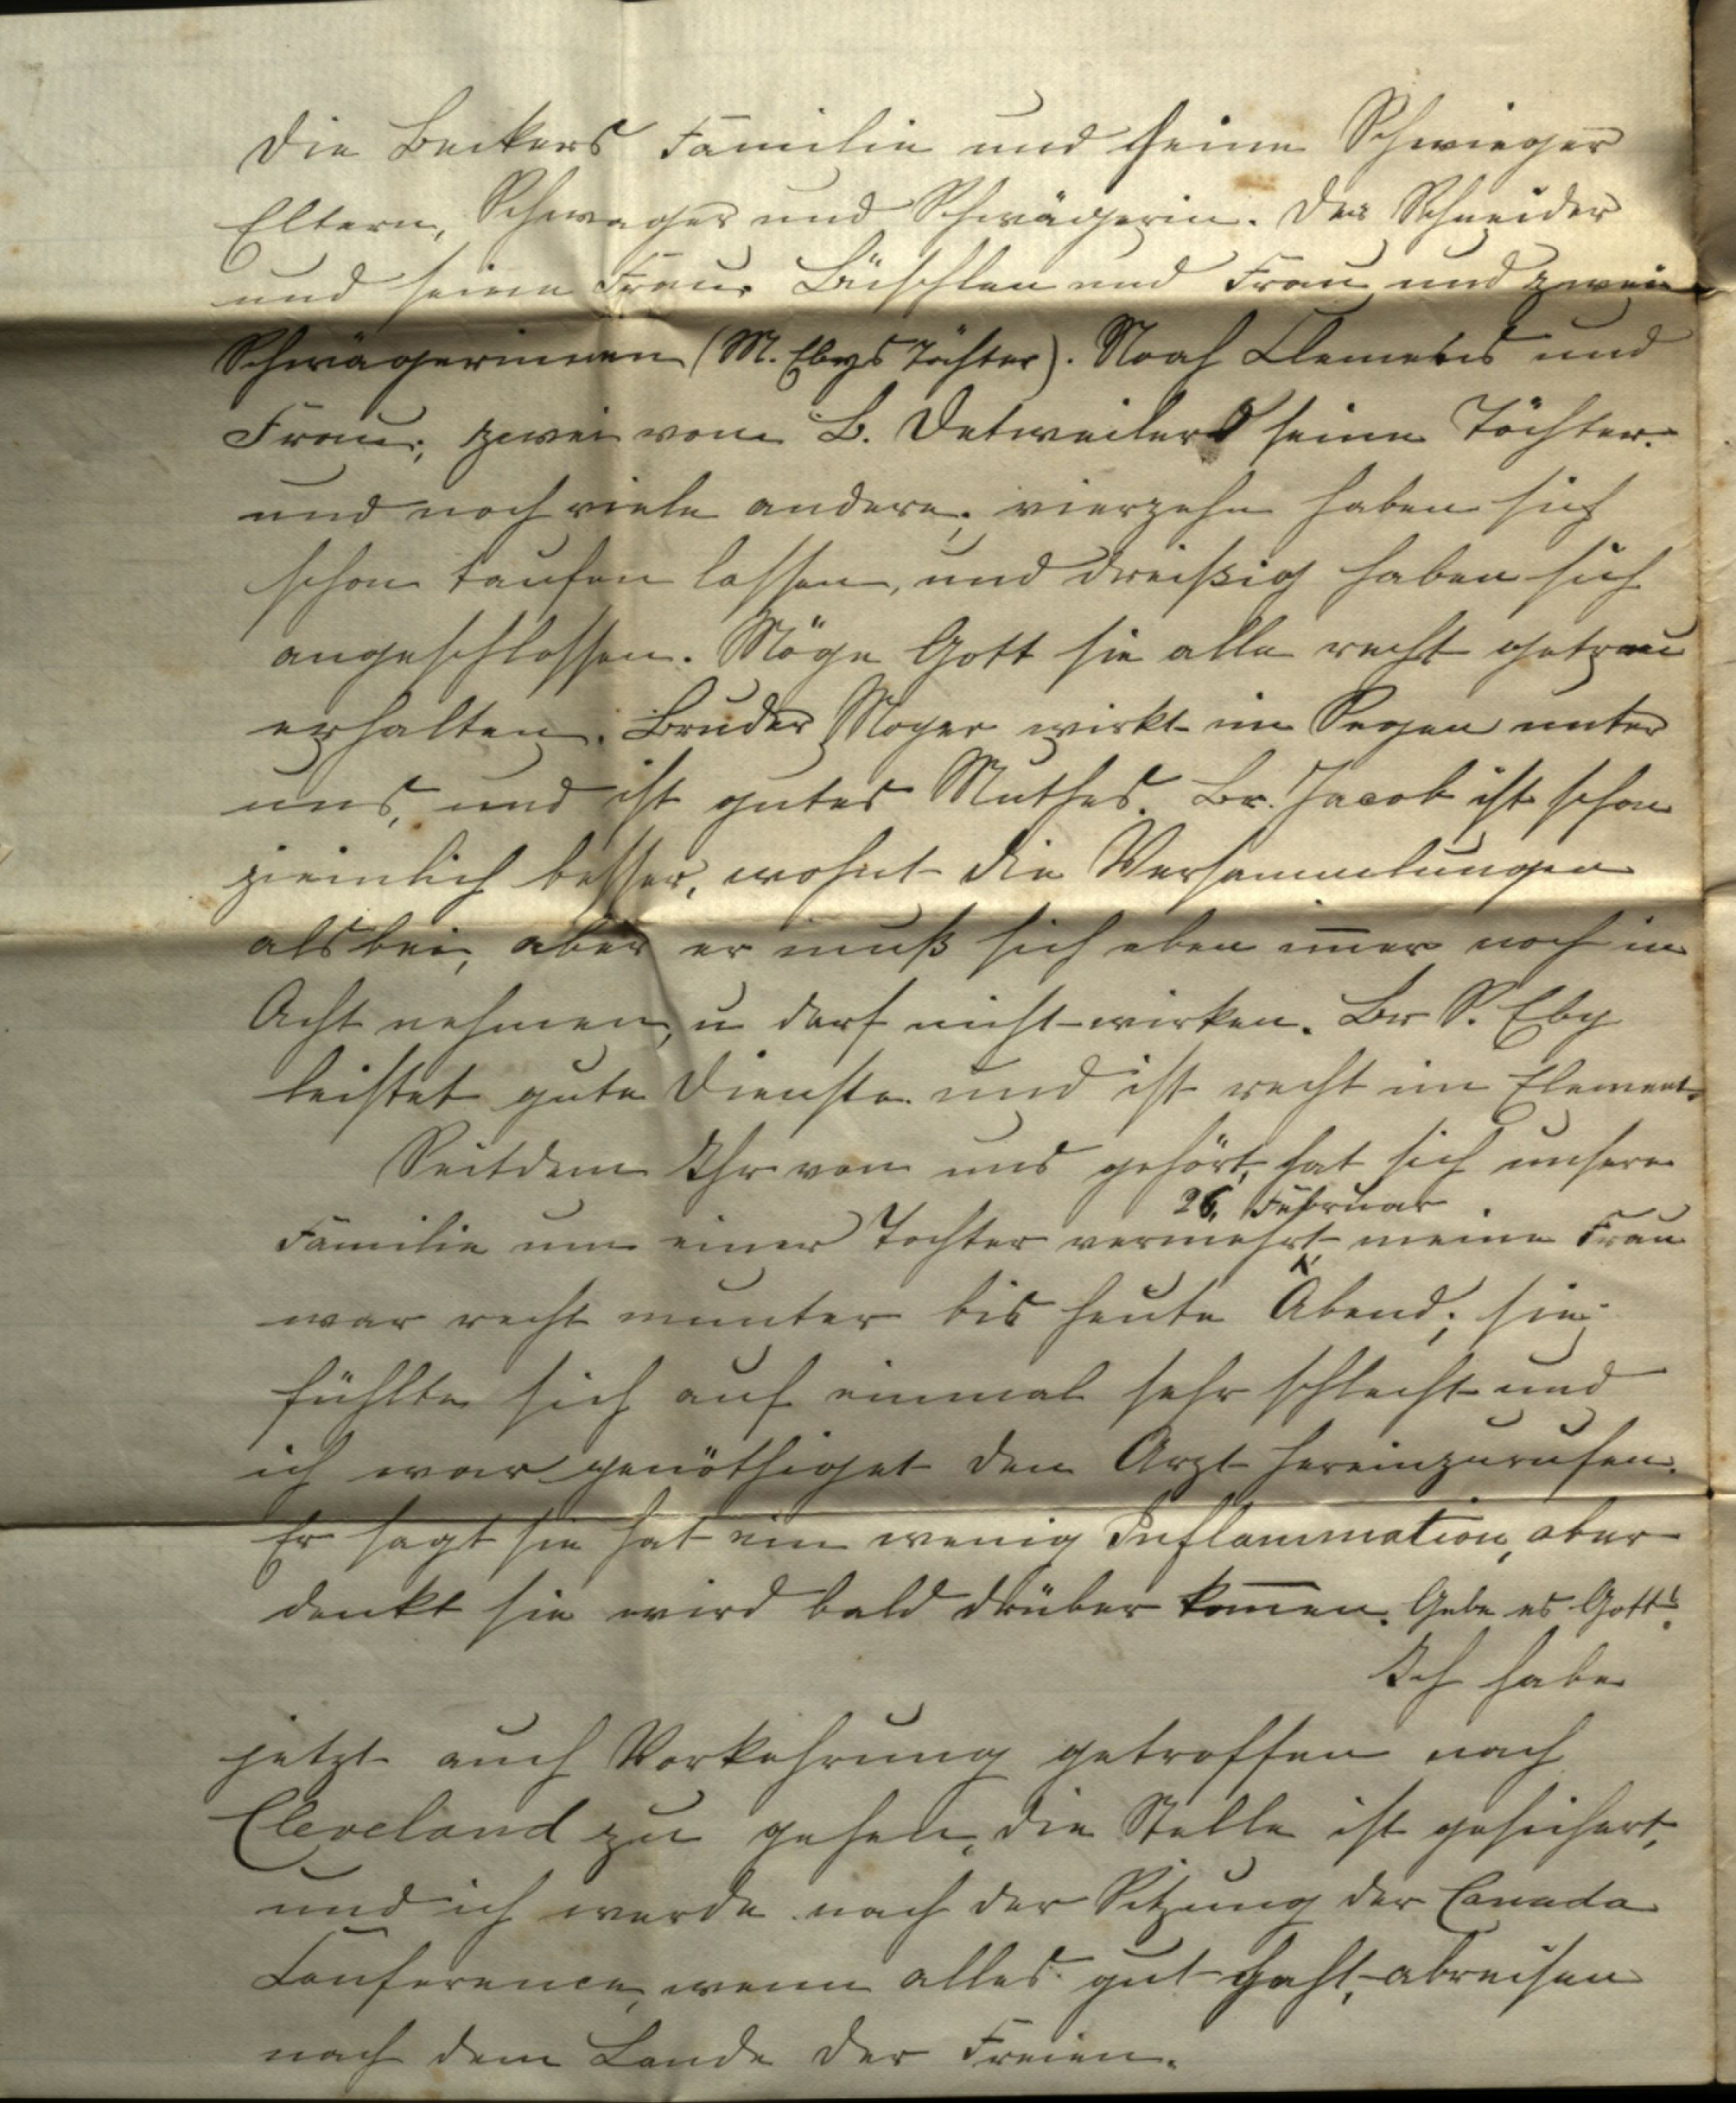 Die Beckers Familie und seine Schwieger
Eltern, Schwager und Schwägerin. Der Schneider
und seine Frau. Büschlen und Frau und zwei
Schwägerinnen (M. Ebys Töchter). Noah Clemens und
Frau; zwei vom B. Detweilers seine Töchter.
und noch viele andere; vierzehn haben sich
schon taufen lassen, und dreißig haben sich
angeschlossen. Möge Gott sie alle recht getreu
erhalten. Bruder Moyer wirkt im Segen unter
uns, und ist gutes Muthes. Br. Jacob ist schon
ziemlich besser, wohnt die Versammlungen
als bei, aber er muß sich eben im̅er noch in
Acht nehmen, u darf nicht wirken. Br S. Eby
leistet gute Dienste und ist recht im Element.
Seitdem Ihr von uns gehört, hat sich unsere
26. Februar
Familie um einer Tochter vermehrt, meine Frau
war recht munter bis heute Abend; sie
fühlte sich auf einmal sehr schlecht und
ich war genöthiget den Arzt hereinzurufen.
Er sagt sie hat ein wenig Inflammation, aber
denkt sie wird bald drüber kom̅en. Gebe es Gott!
Ich habe
jetzt auch Vorkehrung getroffen nach
Cleveland zu gehen, die Stelle ist gesichert,
und ich werde nach der Sitzung der Canada
Conference, wenn alles gut geht, abreisen
nach dem Lande der Freien.